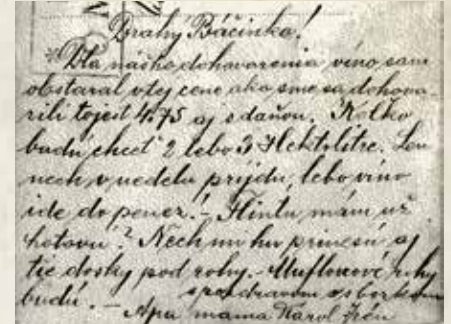 Drahý Báčinko!
Dla nášho dohovorenia víno som
obstaral v tej cene ako sme sa dohovo-
rili to jest 4.75 aj s daňou. Kolko
budú chcet 2 lebo 3 Hektolitre. Len
nech v nedelu prijdu, lebo víno
ide do penez! - Flintu mám už
hotovú? Nech mi hu prinesú aj
tie dosky pod rohy. - Muflonové rohy
budú. - s pozdravom
Apa mama Karol